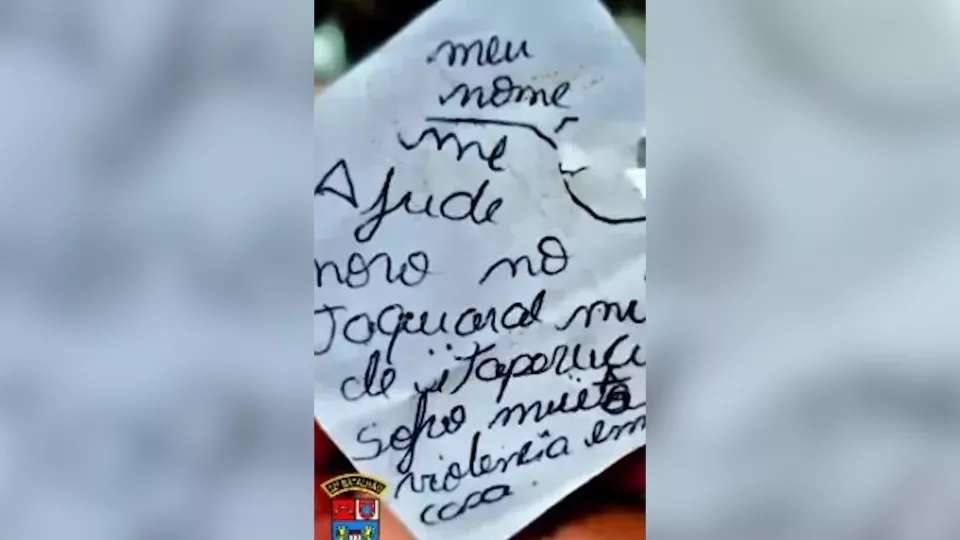 meu
nome
me
Ajude
moro no
Taquaral mu
de itaperuçu
sofro muito
violencia em
casa.
BATALHÃO